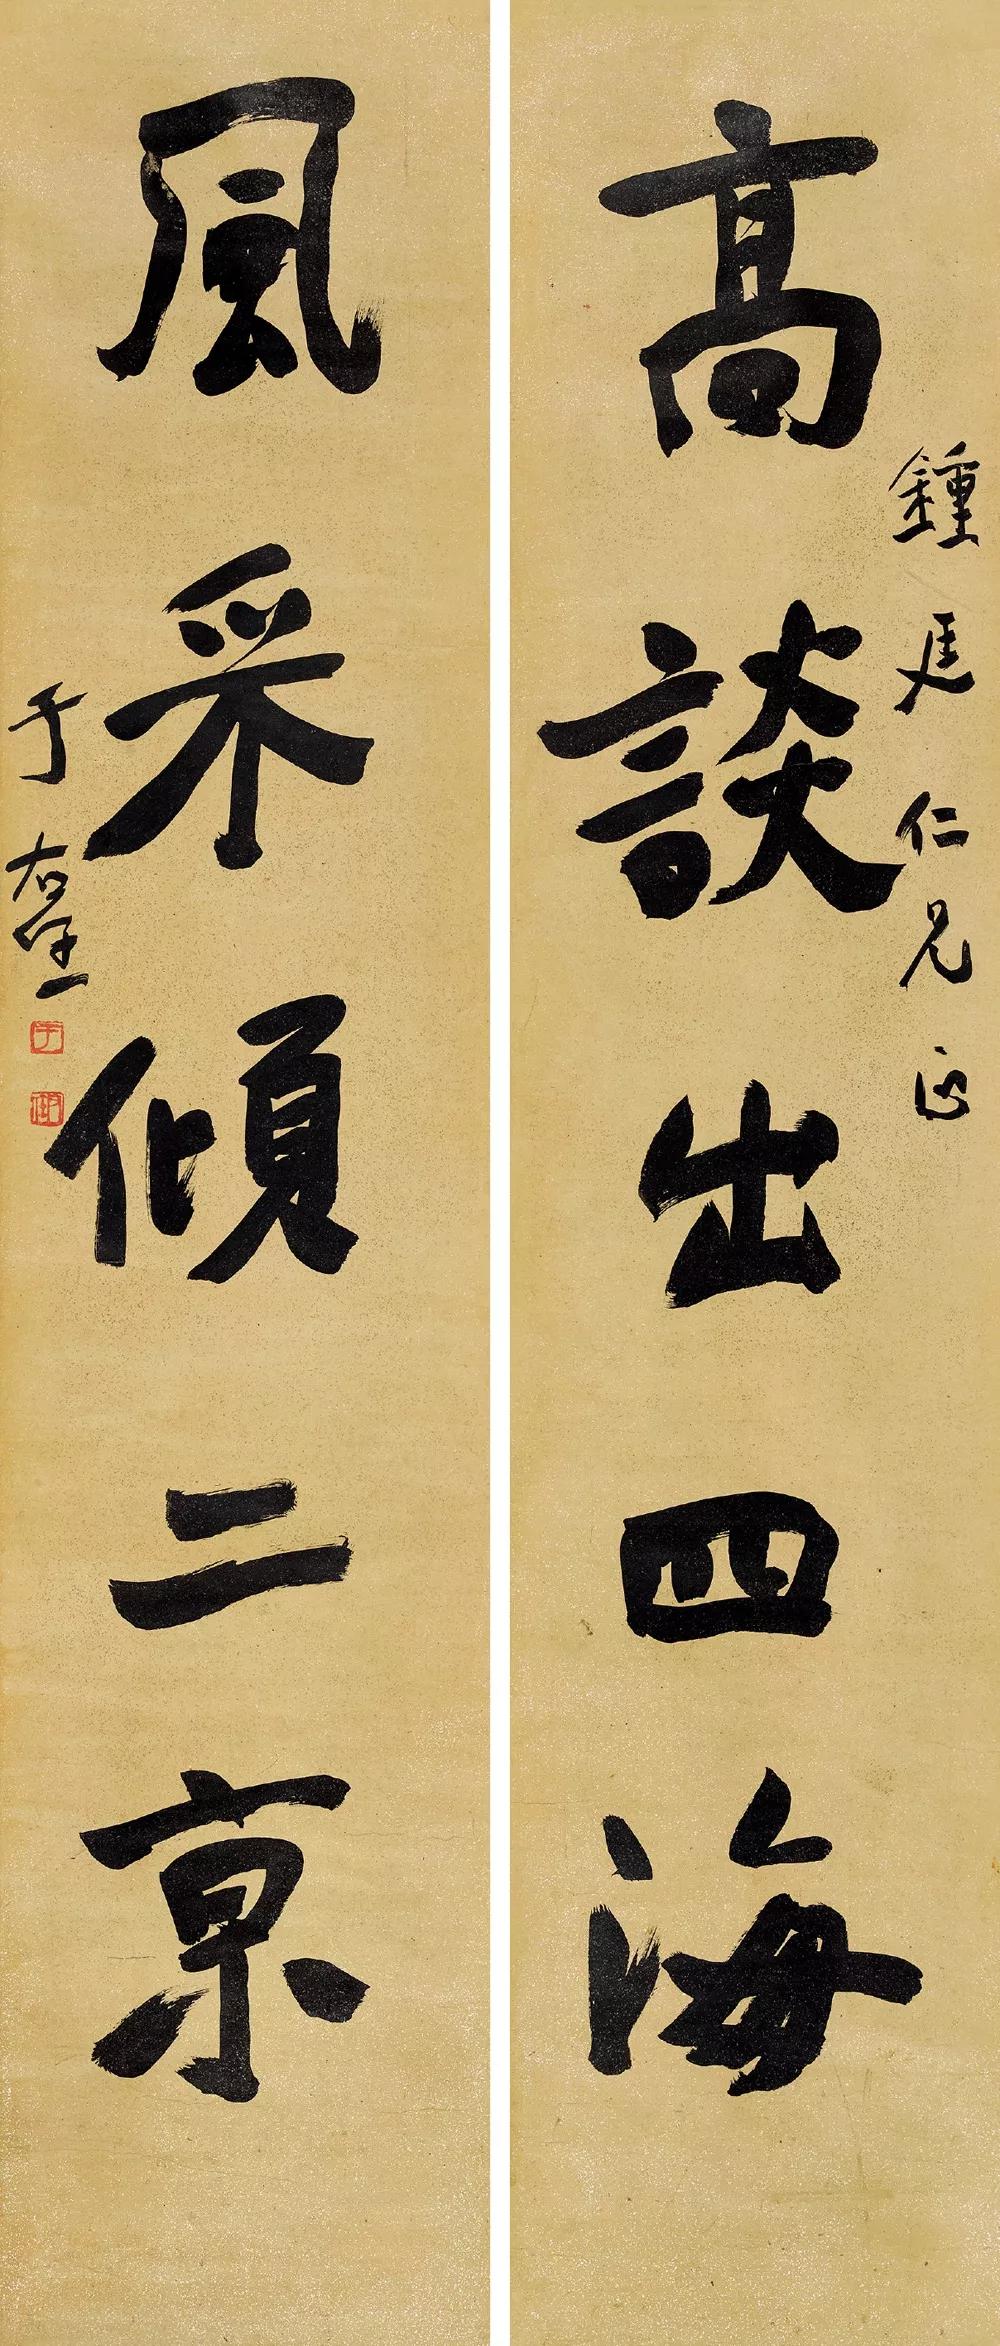 鍾廷仁兄正
高談出四海
風采傾二京
于右任